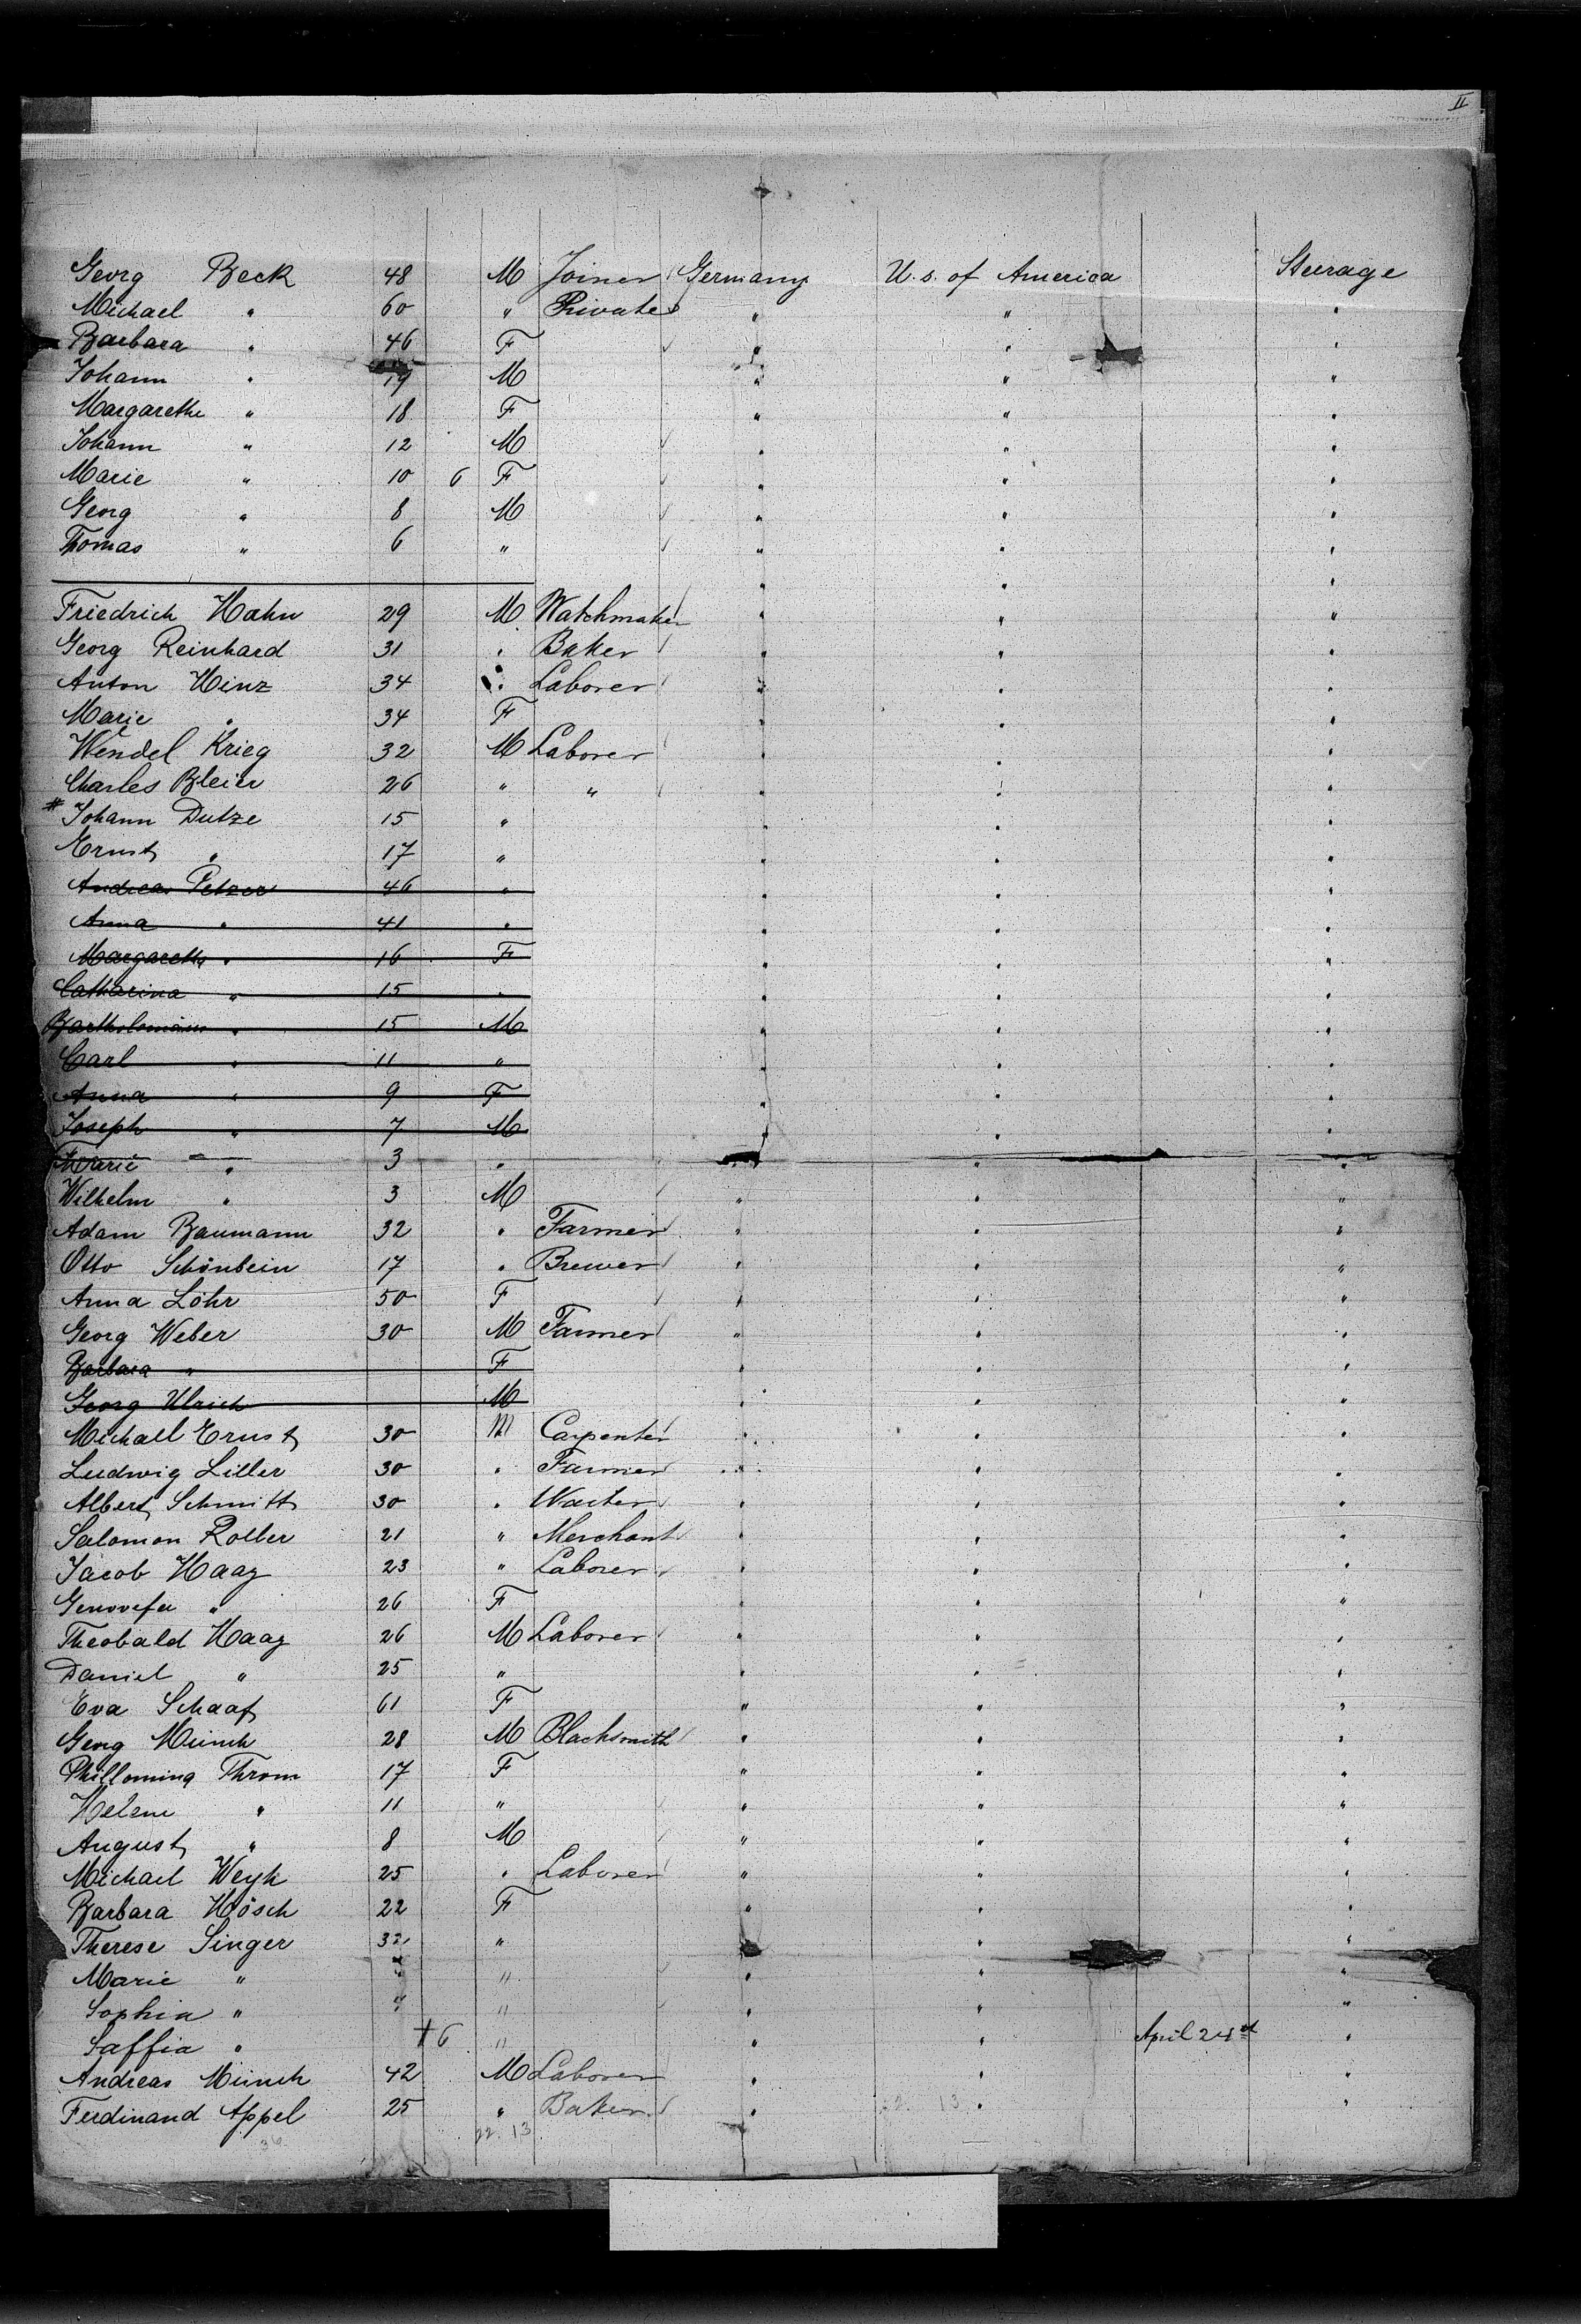 II
Georg Beck 48 M Joiner Germany U. S. of America Steerage
Michael " 60 " Private " " "
Barbara " 46 F " " "
Johann " 19 M " " "
Margarethe " 18 F " " "
Johann " 12 M " " "
Marie " 10 6 F " " "
Georg " 8 M " " "
Thomas " 6 " " " "
" " "
Friedrich Hahn 29 M Watchmaker " " "
Georg Reinhard 31 " Baker " " "
Anton Hinz 34 " Laborer " " "
Marie " 34 F " " "
Wendel Krieg 32 M Laborer " " "
Charles Bleier 26 " " " " "
# Johann Dutze 15 " " " "
Ernst " 17 " " " "
Andreas Petzer 46 " " " "
Anna " 41 " " " "
Margaretha " 16 F " " "
Catharina " 15 " " " "
Bartholomäus " 15 M " " "
Carl " 11 " " " "
Anna " 9 F " " "
Joseph " 7 M " " "
Marie " 3 " " " "
Wilhelm " 3 M " " "
Adam Baumann 32 " Farmer " " "
Otto Schönbein 17 " Brewer " " "
Anna Löhr 50 F " " "
Georg Weber 30 M Farmer " " "
Barbara " F " " "
Georg Ulrich M " " "
Michael Ernst 30 M Carpenter " " "
Ludwig Liller 30 " Farmer " " "
Albert Schmitt 30 " Waiter " " "
Salomon Roller 21 " Merchant " " "
Jacob Haag 23 " Laborer " " "
Genovefa " 26 F " " "
Theobald Haag 26 M Laborer " " "
Daniel " 25 " " " "
Eva Schaaf 61 F " " "
Georg Münch 28 M Blacksmith " " "
Phillomina Throm 17 F " " "
Helene " 11 " " " "
August " 8 M " " "
Michael Weyh 25 " Laborer " " "
Barbara Hösch 22 F " " "
Therese Singer 32 " " " "
Marie " " " " "
Sophia " " " " "
Saffia " + 6 " " " April 24 "
Andreas Münch 42 M Laborer " " "
Ferdinand Appel 25 " Baker " " "
36 22. 13